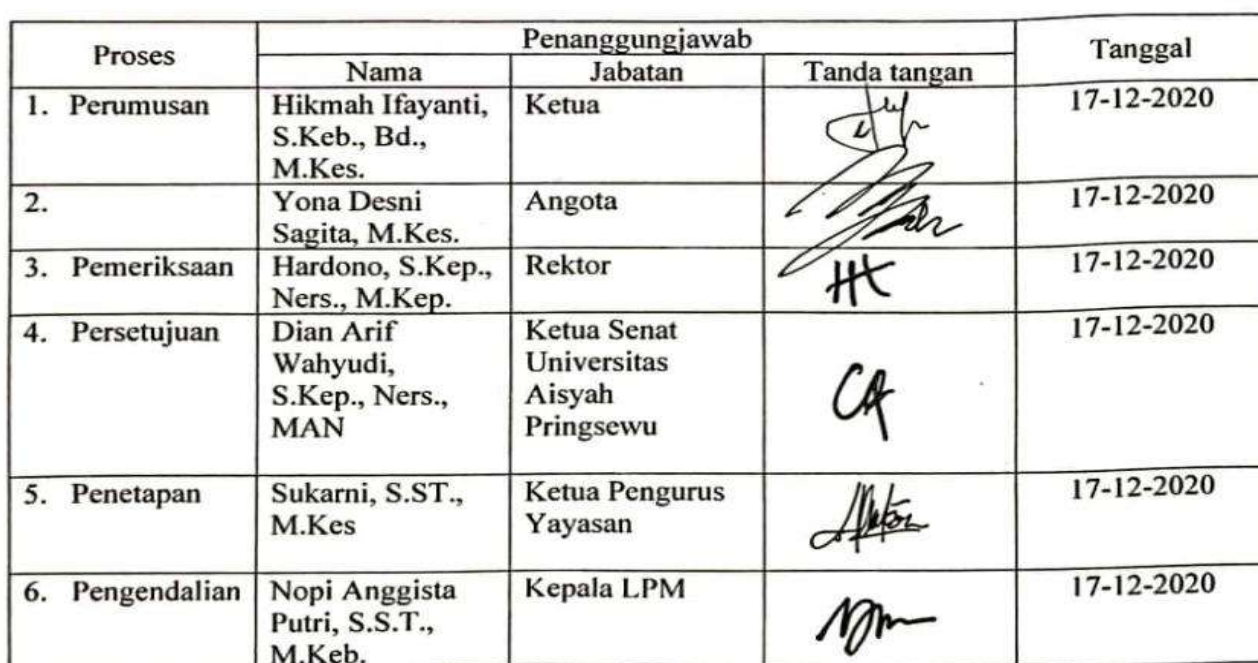 Proses
Penanggungjawab
Tanggal
Nama
Jabatan
Tanda tangan
1. Perumusan
Hikmah Ifayanti,
S.Keb., Bd.,
M.Kes.
Ketua
17-12-2020
2.
Yona Desni
Sagita, M.Kes.
Angota
17-12-2020
3. Pemeriksaan
Hardono, S.Kep.,
Ners., M.Kep.
Rektor
17-12-2020
4. Persetujuan
Dian Arif
Wahyudi,
S.Kep., Ners.,
MAN
Ketua Senat
Universitas
Aisyah
Pringsewu
17-12-2020
5. Penetapan
Sukarni, S.ST.,
M.Kes
Ketua Pengurus
Yayasan
17-12-2020
6. Pengendalian
Nopi Anggista
Putri, S.S.T.,
M.Keb.
Kepala LPM
17-12-2020